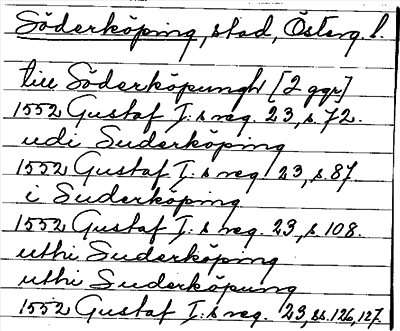 Söderköping, stad, Österg. l.
till Söderköpungh [2 ggr]
1552 Gustaf I:s reg. 23, s. 72.
udi Suderköping
1552 Gustaf I:s reg. 23, s. 87
i Suderköping
1552 Gustaf I:s reg. 23, s. 108.
uthi Suderköping
uthi Suderköpung
1552 Gustaf I:s reg. 23, ss. 126, 127